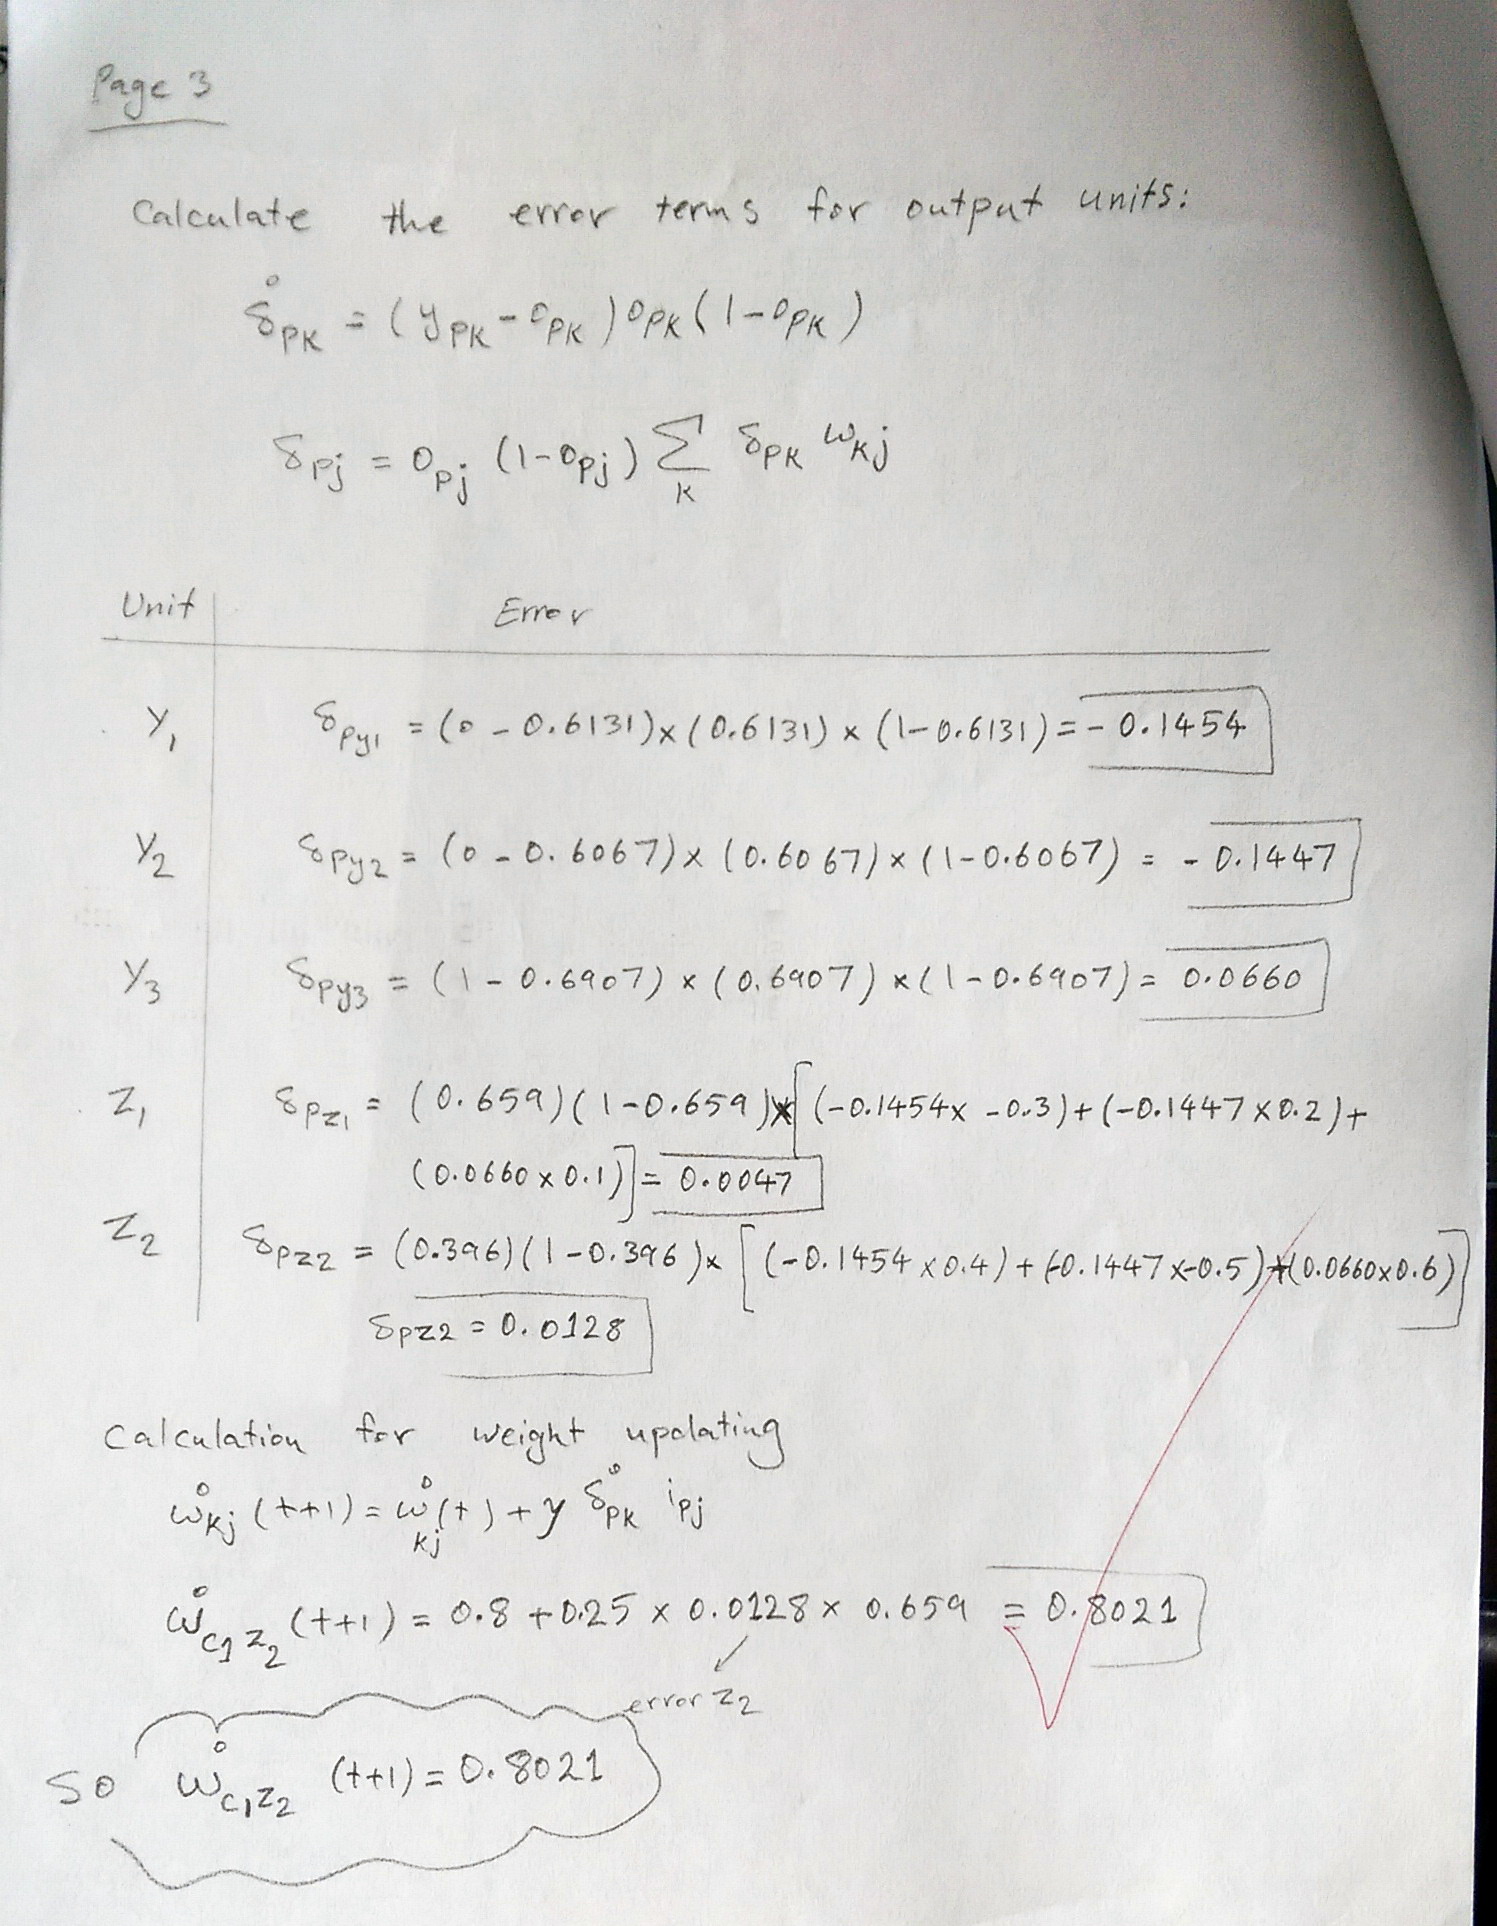 Page 3
Calculate the error terms for output units:
δ°PK = (yPK - OPK) OPK (1 - OPK)
δPj = OPj (1 - OPj) Σ K δPK ωKj
Unit Error
Y1 δPy1 = (0 - 0.6131) x (0.6131) x (1 - 0.6131) = - 0.1454
Y2 δPy2 = (0 - 0.6067) x (0.6067) x (1 - 0.6067) = - 0.1447
Y3 δPy3 = (1 - 0.6907) x (0.6907) x (1 - 0.6907) = 0.0660
Z1 δPZ1 = (0.659)(1 - 0.659) x [(-0.1454 x -0.3) + (-0.1447 x 0.2) +
(0.0660 x 0.1)] = 0.0047
Z2 δPZ2 = (0.396)(1 - 0.396) x [(-0.1454 x 0.4) + (-0.1447 x -0.5) + (0.0660 x 0.6)]
δPZ2 = 0.0128
Calculation for weight updating
ω°Kj (t+1) = ω°kj (t) + y δ°PK iPj
ω°C1Z2 (t+1) = 0.8 + 0.25 x 0.0128 x 0.659 = 0.8021
error Z2
So ω°C1Z2 (t+1) = 0.8021